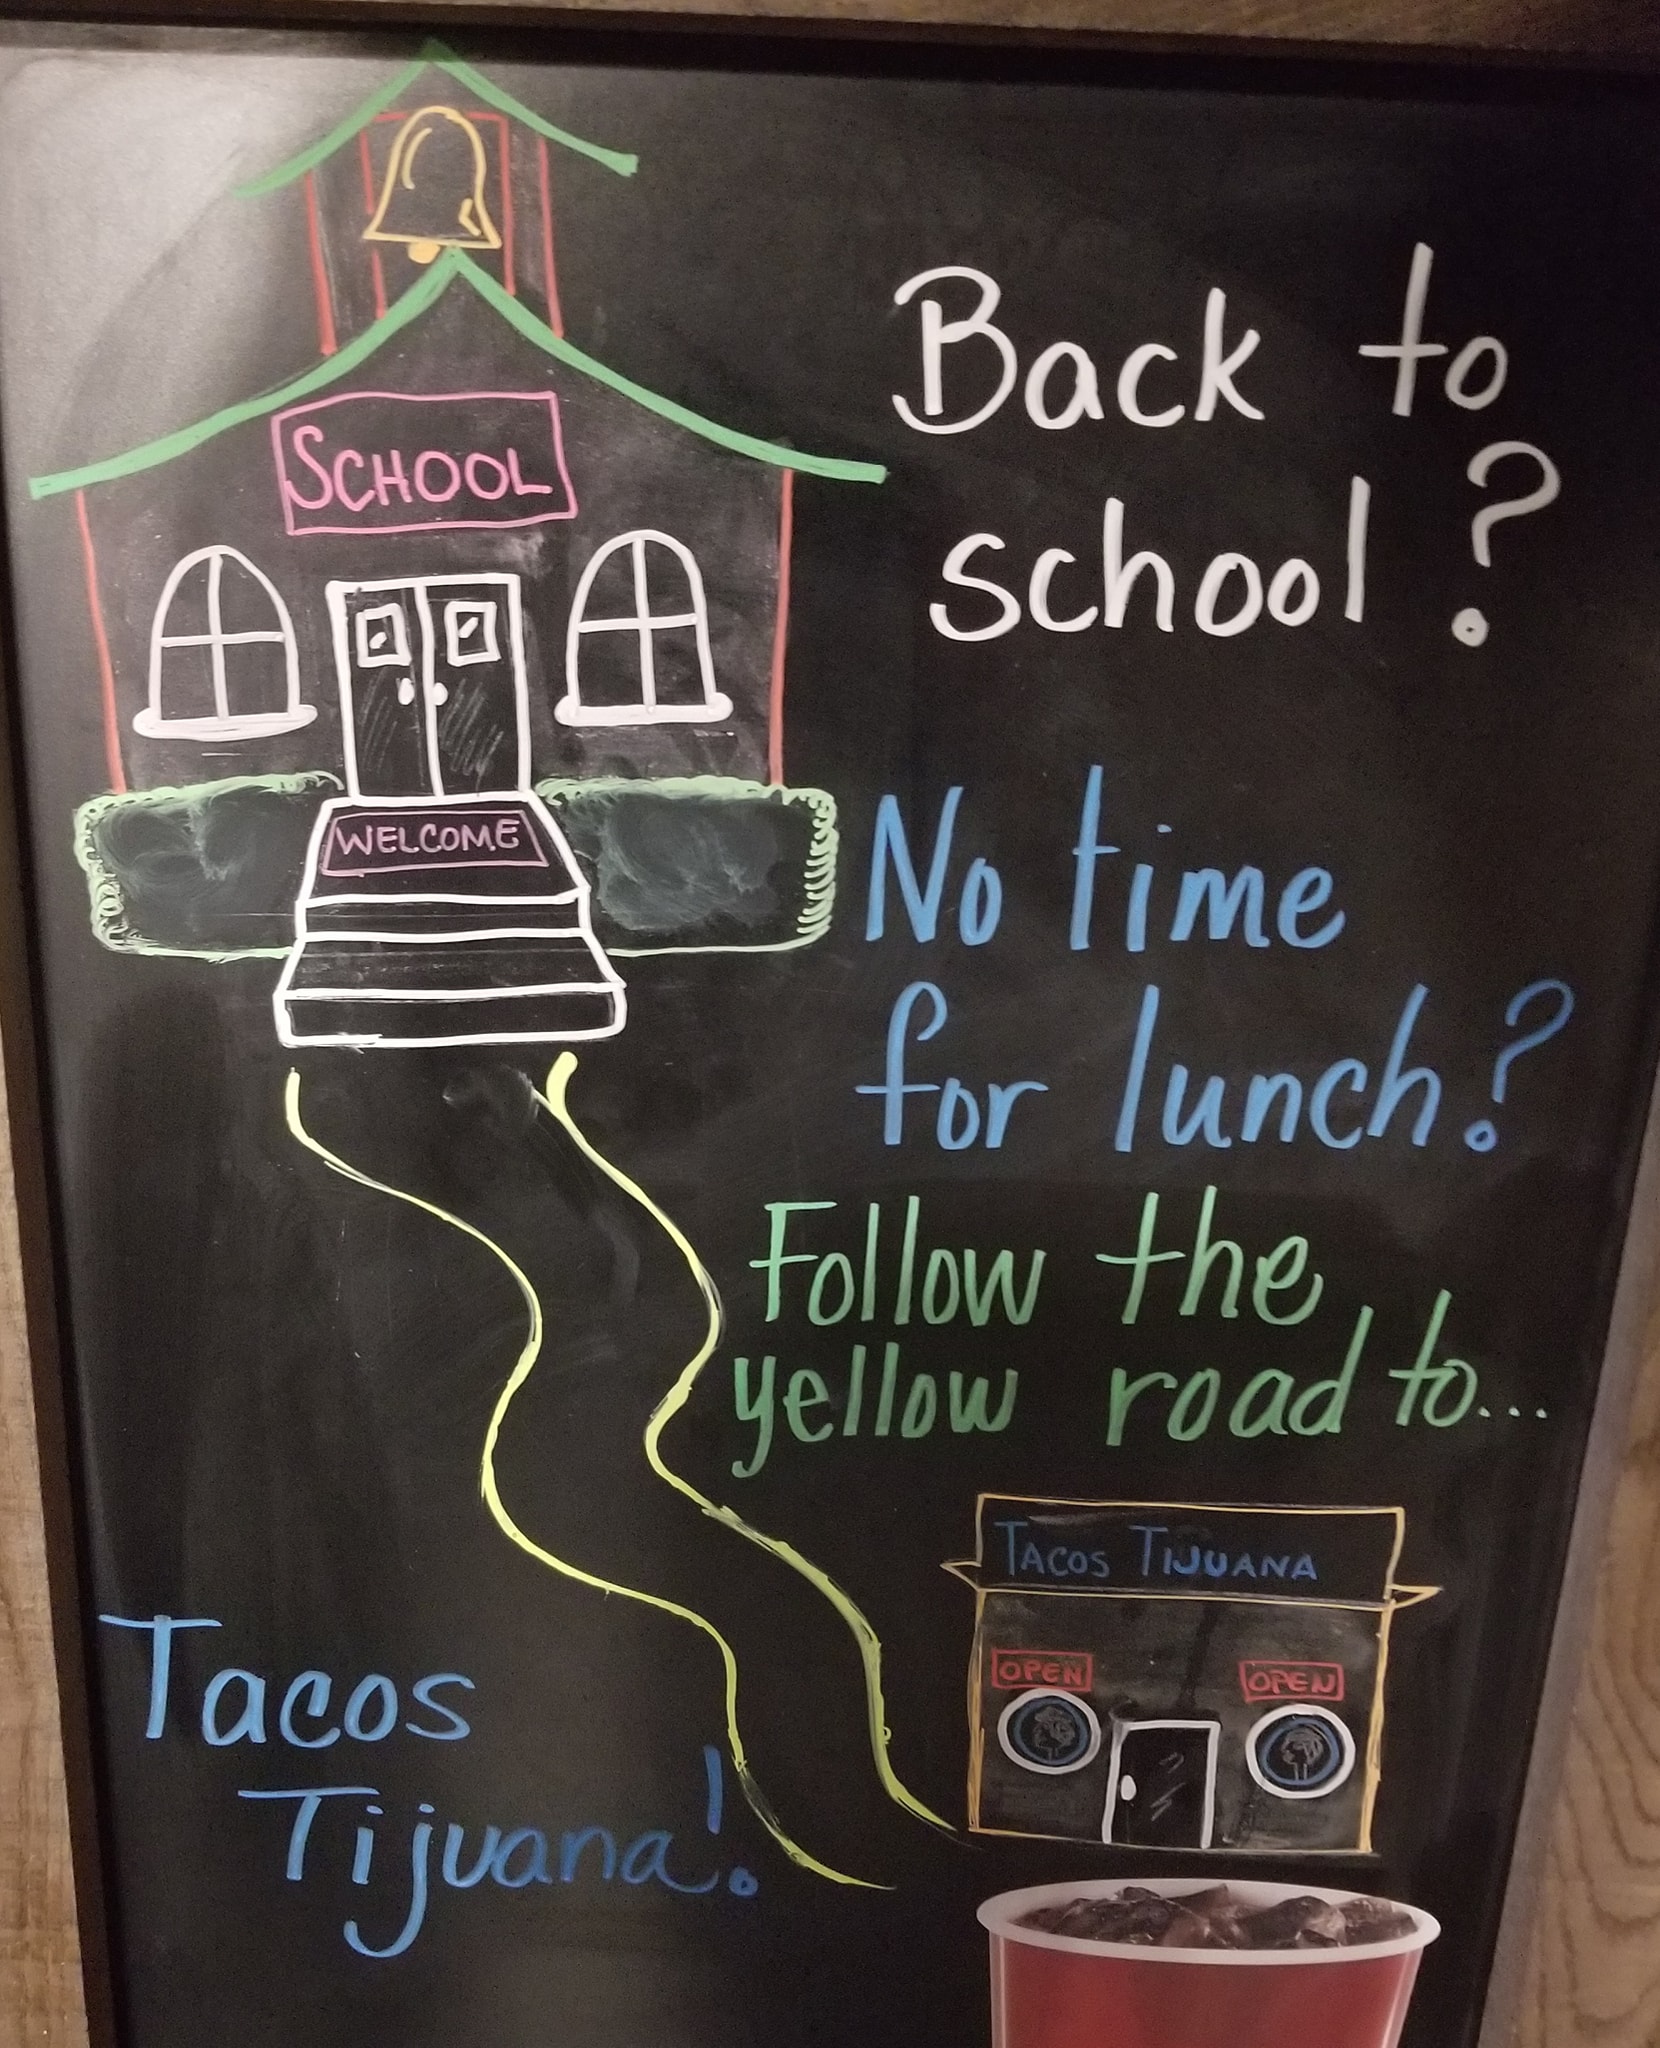 SCHOOL
WELCOME
Back to
school?
No time
for lunch?
Follow the
yellow road to...
TACOS TIJUANA
OPEN OPEN
Tacos
Tijuana!